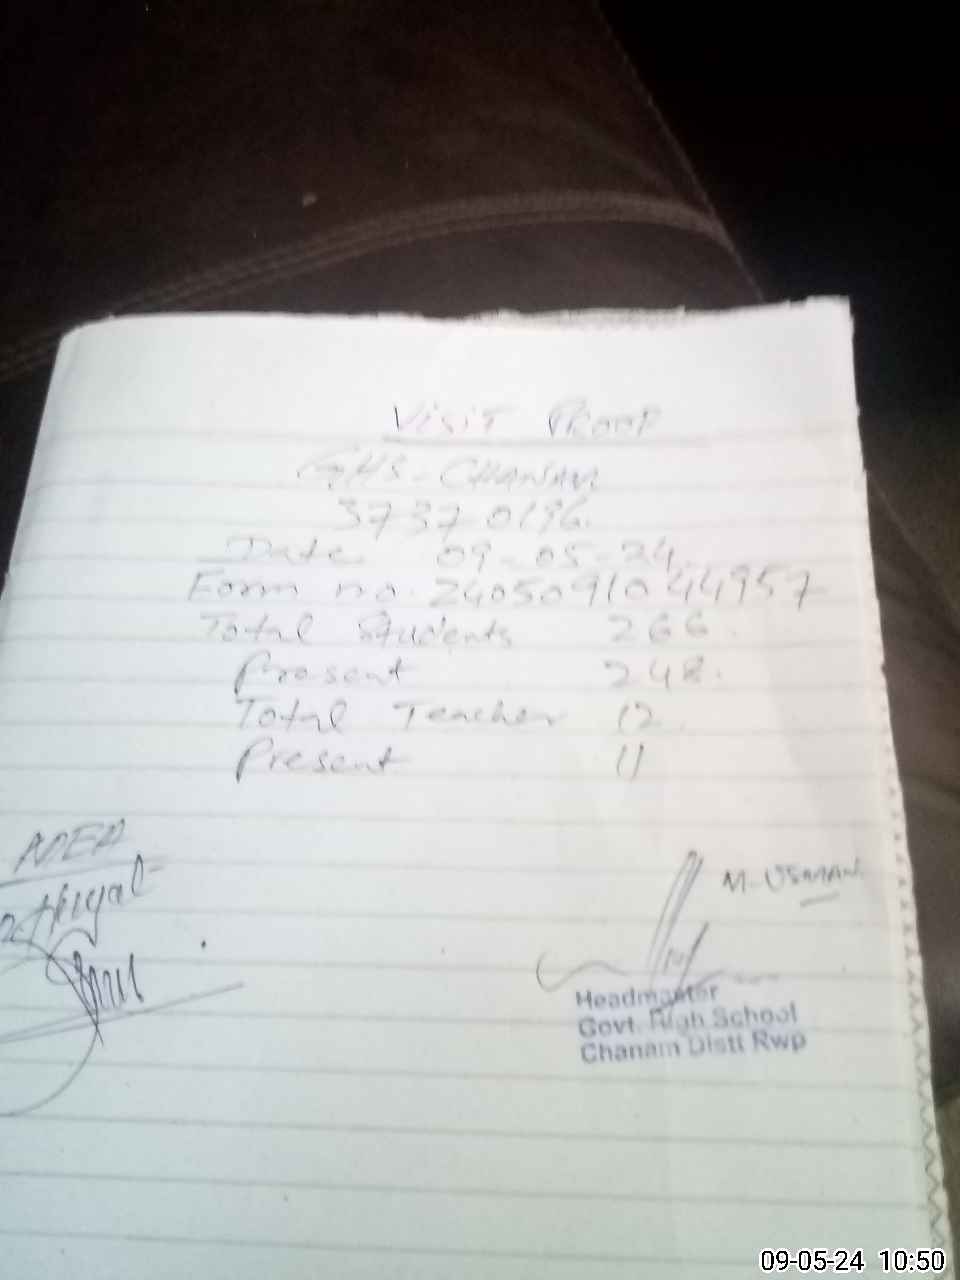 VISIT PROOF
GHS - CHANAM
37370196.
Date 09-05-24.
Form no. 240509104 4957
Total Students 266.
Present 248.
Total Teacher 12.
Present 11
M-USMAN
Headmaster
Govt. High School
Chanam Distt Rwp
09-05-24 10:50